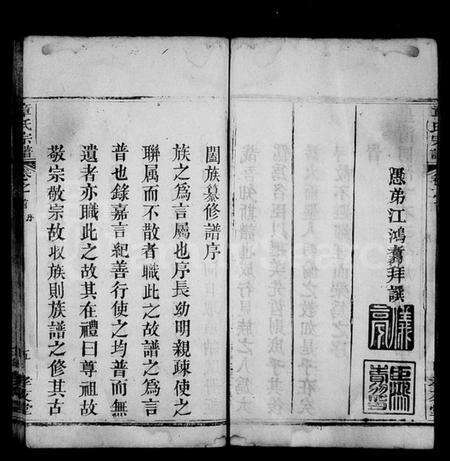 愚弟江鴻壽拜譔
闔族纂修譜序
族之爲言屬也序長幼明親疎使之
聯屬而不散者職此之故譜之爲言
普也錄嘉言紀善行使之均普而無
遺者亦職此之故其在禮曰尊祖故
敬宗敬宗故收族則族譜之修其古
氏宗譜
卷之首